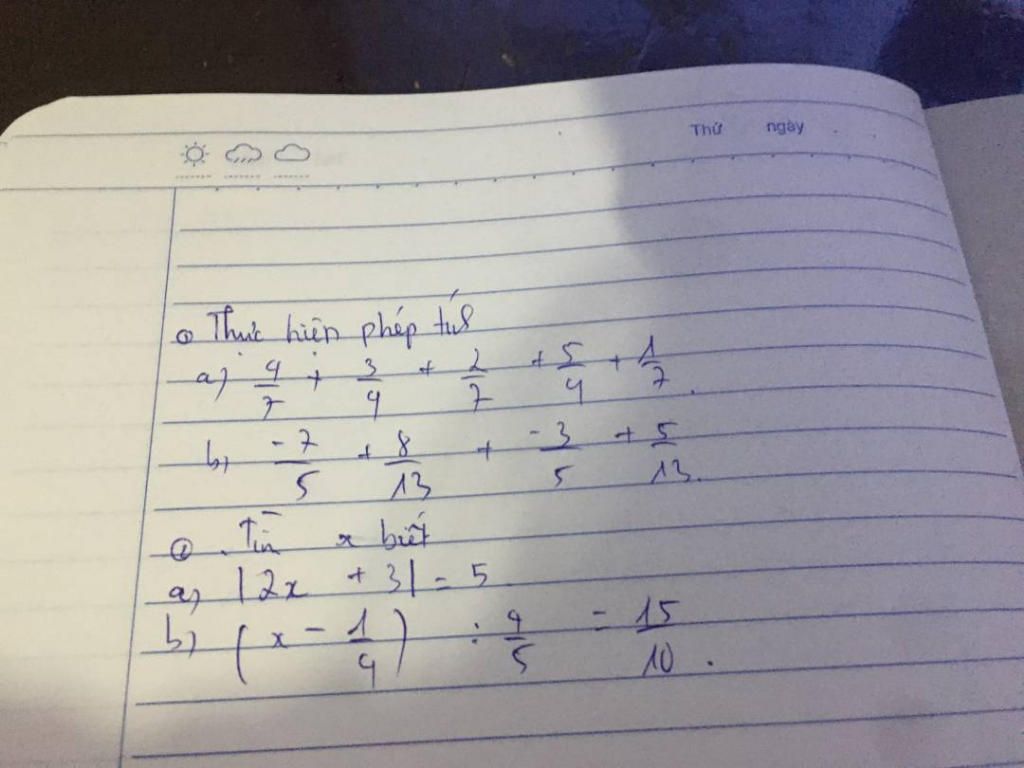 Thứ ngày
① Thực hiện phép tính
a) 4/7 + 3/4 + 2/7 + 5/4 + 1/7.
b) -7/5 + 8/13 + -3/5 + 5/13.
②. Tìm x biết
a) |2x + 3| = 5
b) (x - 1/4) : 4/5 = 15/10.